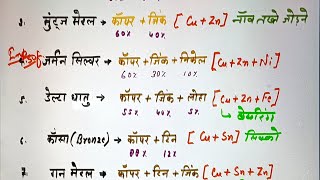 2. मुंद्ज मेटल → कॉपर + जिंक [Cu + Zn] नॉव तख्ते जोड़ने
60% 40%
जर्मन सिल्वर → कॉपर + जिंक + निकेल [Cu+Zn+Ni]
60% 30% 10%
5. डेल्टा धातु → कॉपर + जिंक + लोहा [Cu+Zn+Fe]
55% 40% 5% → बेयरिंग
6. काँसा (Bronze) → कॉपर + टिन [Cu + Sn] सिक्को
88% 12%
7. गन मेटल → कॉपर + टिन + जिंक [Cu + Sn + Zn]